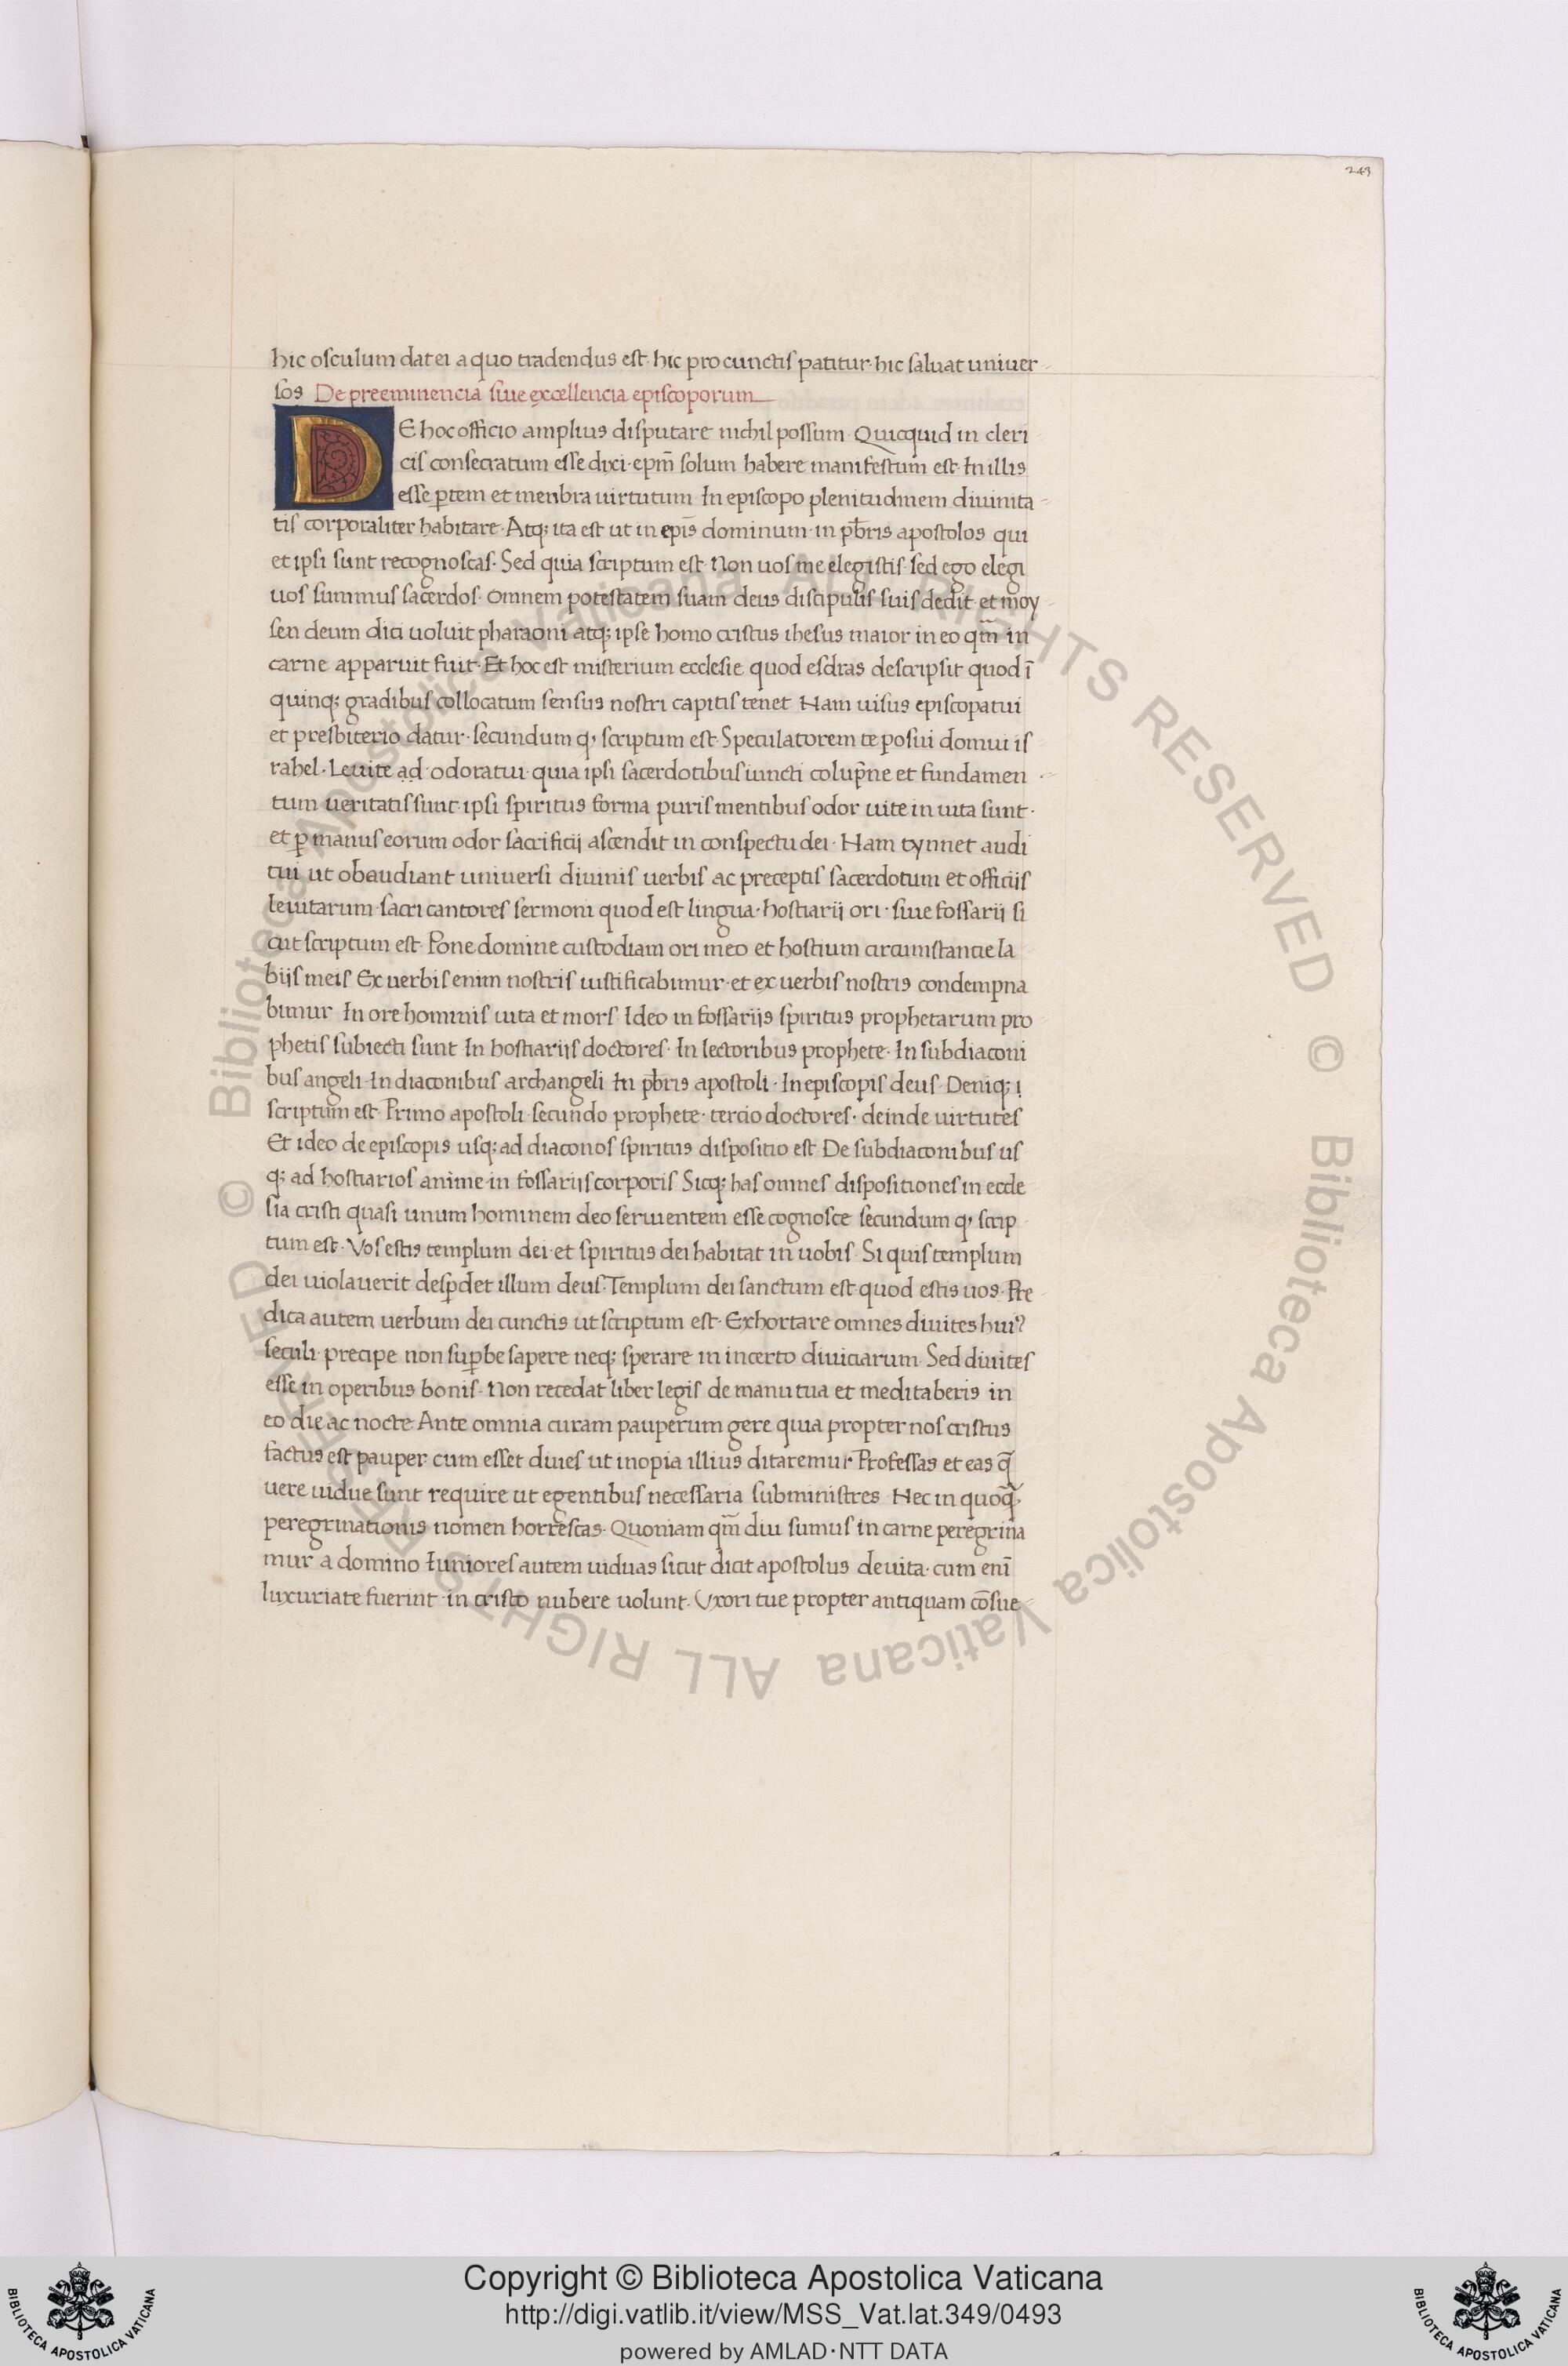 243
hic osculum dat ei a quo tradendus est · hic pro cunctis patitur · hic saluat uniuer
sos De preeminencia siue excellencia episcoporum
DE hoc officio amplius disputare nichil possum · Quicquid in cleri
cis consecratum esse dixi · epm̄ solum habere manifestum est · In illis
esse ꝑtem et menbra uirtutum · In episcopo plenitudinem diuinita
tis corporaliter habitare · Atq; ita est ut in epīs dominum · in pb̄ris apostolos qui
et ipsi sunt recognoscas · Sed quia scriptum est · Non uos me elegistis · sed ego elegi
uos summus sacerdos · omnem potestatem suam deus discipulis suis dedit · et moy
sen deum dici uoluit pharaoni atq; ipse homo cristus ihesus maior in eo qm̄ in
carne apparuit fuit · Et hoc est misterium ecclesie quod esdras descripsit quod ī
quinq; gradibus collocatum sensus nostri capitis tenet Nam uisus episcopatui
et presbiterio datur · secundum q' scriptum est · Speculatorem te posui domui is
rahel · Leuite ad odoratui · quia ipsi sacerdotibus iuncti colup̄ne et fundamen
tum ueritatis sunt · ipsi spiritus forma puris mentibus odor uite in uita sunt ·
et ꝑ manus eorum odor sacrificij ascendit in conspectu dei · Nam tynnet audi
tui ut obaudiant uniuersi diuinis uerbis ac preceptis sacerdotum et officijs
leuitarum · sacri cantores sermoni quod est lingua · hostiarij ori · siue fossarij si
cut scriptum est · Pone domine custodiam ori meo et hostium circumstancie la
bijs meis Ex uerbis enim nostris iustificabimur · et ex uerbis nostris condempna
bimur In ore hominis uita et mors · Ideo in fossarijs spiritus prophetarum pro
phetis subiecti sunt In hostiarijs doctores · In lectoribus prophete · In subdiaconi
bus angeli · In diaconibus archangeli In pb̄ris apostoli · In episcopis deus · Deniq; i
scriptum est · Primo apostoli · secundo prophete · tercio doctores · deinde uirtutes
Et ideo de episcopis usq; ad diaconos spiritus dispositio est · De subdiaconibus us
q; ad hostiarios anime · in fossarijs corporis Sicq; has omnes dispositiones in eccle
sia cristi quasi unum hominem deo seruientem esse cognosce secundum q' scrip
tum est · Vos estis templum dei · et spiritus dei habitat in uobis · Si quis templum
dei uiolauerit desꝑdet illum deus · Templum dei sanctum est · quod estis uos · Pre
dica autem uerbum dei cunctis ut scriptum est · Exhortare omnes diuites hui9
seculi · precipe non suꝑbe sapere neq; sperare in incerto diuiciarum Sed diuites
esse in operibus bonis · Non recedat liber legis de manu tua et meditaberis in
eo die ac nocte · Ante omnia curam pauperum gere quia propter nos cristus
factus est pauper cum esset diues ut inopia illius ditaremur Professas et eas q̄
uere uidue sunt require ut egentibus necessaria subministres · Nec in quoq̄;
peregrinationis nomen horrescas · Quoniam qm̄ diu sumus in carne peregrina
mur a domino Iuniores autem uiduas sicut dicit apostolus deuita · cum enī
luxuriate fuerint · in cristo nubere uolunt · Vxori tue propter antiquam cōsue
© Biblioteca Apostolica Vaticana ALL RIGHTS RESERVED © Biblioteca Apostolica Vaticana ALL RIGHTS RESERVED
Copyright © Biblioteca Apostolica Vaticana
http://digi.vatlib.it/view/MSS_Vat.lat.349/0493
powered by AMLAD·NTT DATA
BIBLIOTECA APOSTOLICA VATICANA
BIBLIOTECA APOSTOLICA VATICANA